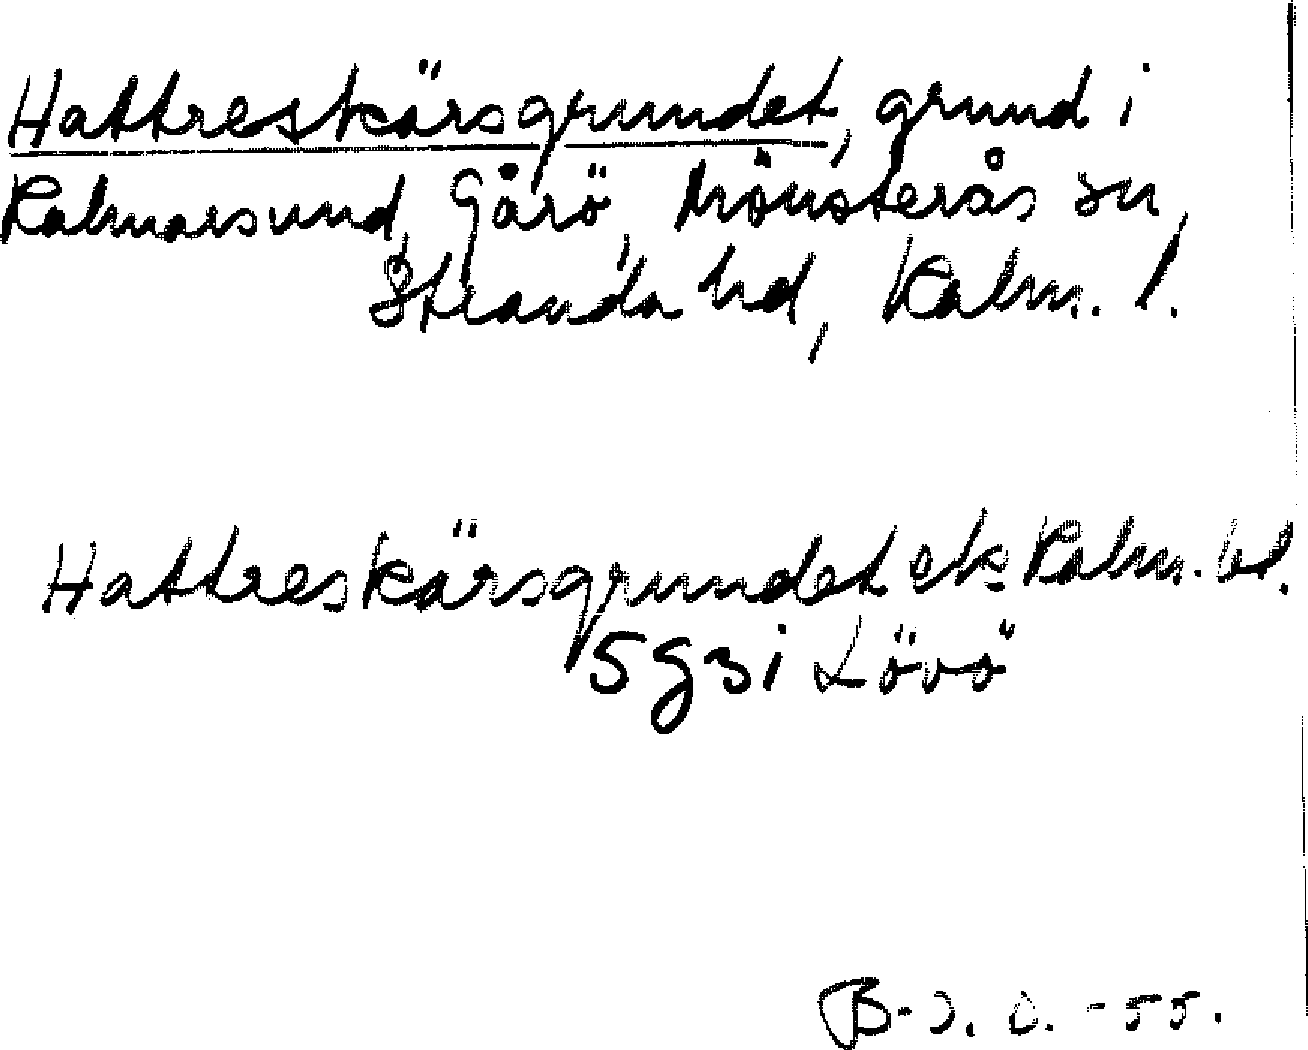 Hattreskärsgrundet, grund i
Kalmarsund, Gårö, Mönsterås sn,
Stranda hd, Kalm. l.
Hattreskärsgrundet ek Kalm. bl.
5 g 3 i Lövö
B-J. O. -55.